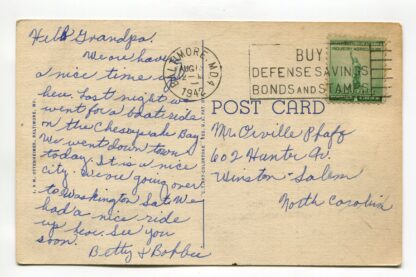 Hello Grandpa!
We are having
a nice time up
here. Last night we
went for a boat ride
on the Chesapeake Bay.
We went down town
today. It is a nice
city. We are going over
to Washington Sat. We
had a nice ride
up here. See you
soon.
Betty & Bobbie
BALTIMORE, MD.
AUG 13
1942
BUY
DEFENSE SAVINGS
BONDS AND STAMPS
POST CARD
Mr. Orville Pfaff
602 Hunter Av.
Winston-Salem
North Carolina